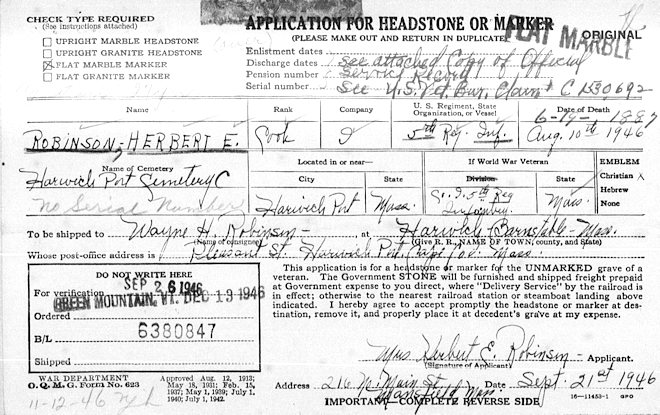 CHECK TYPE REQUIRED
(See instructions attached)
UPRIGHT MARBLE HEADSTONE
UPRIGHT GRANITE HEADSTONE
FLAT MARBLE MARKER
FLAT GRANITE MARKER
APPLICATION FOR HEADSTONE OR MARKER
(PLEASE MAKE OUT AND RETURN IN DUPLICATE)
ORIGINAL
FLAT MARBLE
Enlistment dates
Discharge dates See attached Copy of Official
Pension number Service Record
Serial number See U.S. Vet. Bur. Claim # C 1530692
Name
Rank
Company
U. S. Regiment, State Organization, or Vessel
Date of Death
ROBINSON, HERBERT E.
Cook
I
5th Reg. Inf.
6-19-1887
Aug. 10th 1946
Name of Cemetery
Located in or near—
If World War Veteran
EMBLEM
City
State
Division
State
Christian
Hebrew
None
Harwich Port Cemetery
No Serial Number
Harwich Port
Mass.
Co. I. 5th Reg Infantry
Mass.
To be shipped to Wayne H. Robinson at Harwich (Barnstable-Mass.
(Name of consignee)
(Give R. R. NAME OF TOWN, county, and State)
Whose post-office address is Pleasant St. Harwich Port, Cape Cod. Mass.
DO NOT WRITE HERE
For verification SEP 26 1946
GREEN MOUNTAIN, VT. DEC 13 1946
Ordered
B/L 6380847
Shipped
This application is for a headstone or marker for the UNMARKED grave of a
veteran. The Government STONE will be furnished and shipped freight prepaid
at Government expense to you direct, where "Delivery Service" by the railroad is
in effect; otherwise to the nearest railroad station or steamboat landing above
indicated. I hereby agree to accept promptly the headstone or marker at des-
tination, remove it, and properly place it at decedent's grave at my expense.
Mrs. Herbert E. Robinson - Applicant.
(Signature of Applicant)
Address 216 N. Main St. Date Sept. 21st 1946
Mansfield, Mass.
WAR DEPARTMENT
O. Q. M. G. Form No. 623
Approved Aug. 12, 1913;
May 18, 1931; Feb. 15,
1937; May 1, 1939; July 1,
1940; July 1, 1942.
11-12-46
IMPORTANT—COMPLETE REVERSE SIDE
16—11453-1 GPO